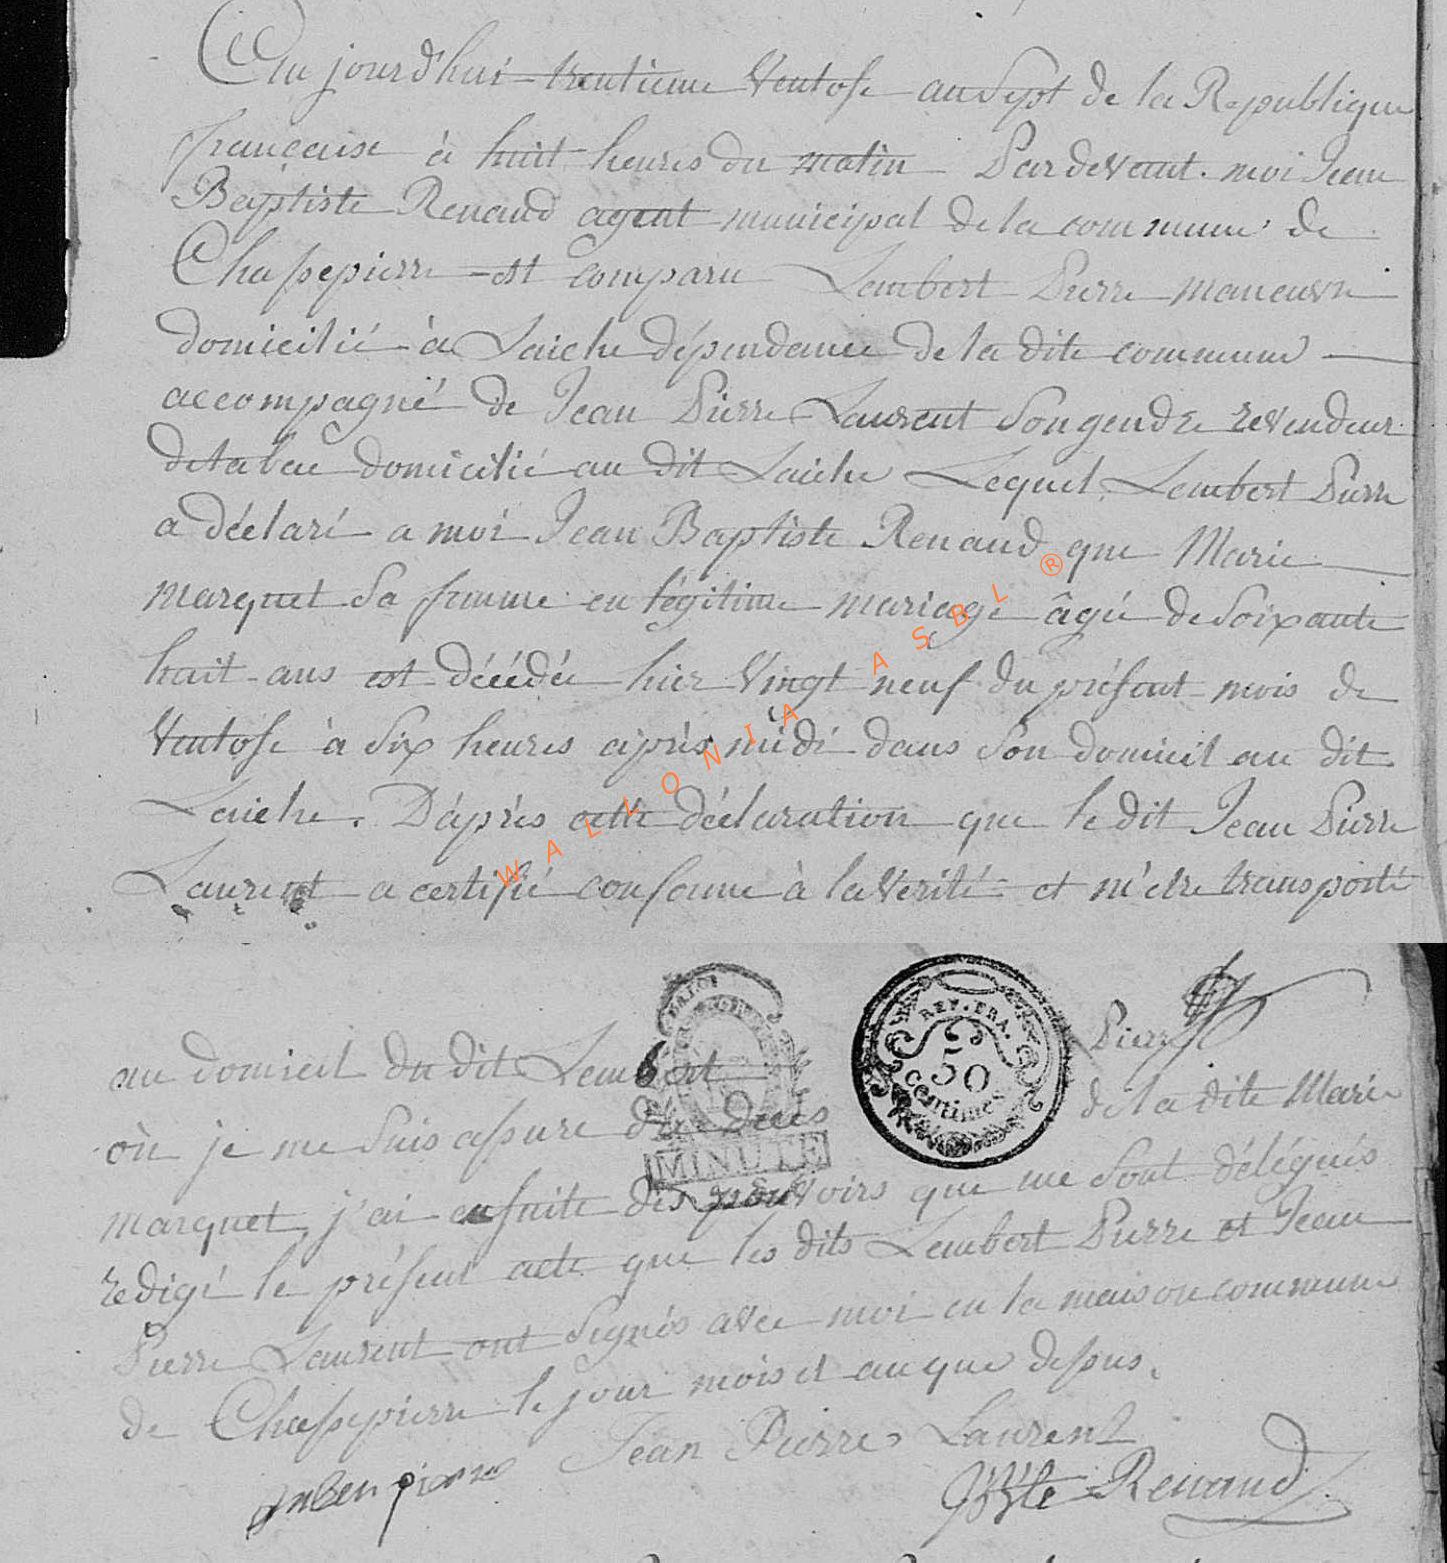 Aujourd'hui trentieme Ventose an Sept de la Republique
française à huit heures du matin Pardevant moi Jean
Baptiste Renaud agent municipal de la commune de
Chassepierre est comparu Lambert Pierre maneuvre
domicilié à Laiche dépendance de la dite commune
accompagné de Jean Pierre Laurent Son gendre revendeur
de tabac domicilié au dit Laiche Lequel Lambert Pierre
a déclaré a moi Jean Baptiste Renaud que Marie
marquet Sa femme en légitime mariage âgé de Soixante
huit ans est décédé hier Vingt neuf du présent mois de
Ventose à Six heures après midi dans Son domicil au dit
Laiche. D'après cette déclaration que le dit Jean Pierre
Laurent a certifié conforme à la Verité et m'etre transporté
au domicil du dit Lambert Pierre
où je me Suis assure du deces de la dite Marie
marquet, j'ai ensuite des pouvoirs que me Sont délégués
redigé le présent acte que les dits Lambert Pierre et Jean
Pierre Laurent ont Signés avec moi en la maison commune
de Chassepierre le jour mois et an que dessus.
Jean Pierre Laurent
pierre
JBte Renaud
MINUTE
REP. FRA.
50
centimes
WALLONIA ASBL ®